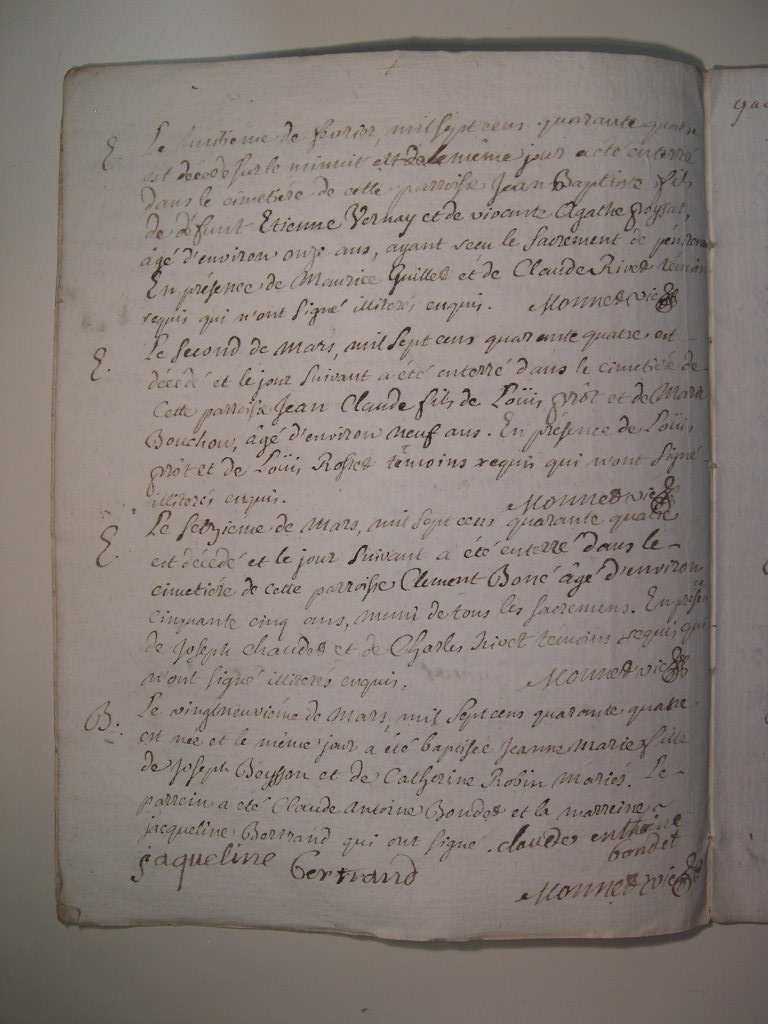 E. Le huitieme de fevrier, mil sept cens quarante quatre
est décédé sur le minuit et le même jour a eté enterré
dans le cimetiére de cette parroisse Jean Baptiste fils
de défunt Etienne Vernay et de vivante Agathe
âgé d'environ onze ans, ayant receu le Sacrement de
En présence de Maurice Guillet et de Claude Rivet témoins
requis qui n'ont signé illiterés enquis. Monnet vic
E. Le second de Mars, mil sept cens quarante quatre est
décédé et le jour suivant a été enterré dans le cimetiére de
Cette parroisse Jean Claude fils de Loüis et de Marie
Bouchon, âgé d'environ neuf ans. En présence de Loüis
et de Loüis Rosset témoins requis qui n'ont signé
illiterés enquis. Monnet vic
E. Le seizieme de Mars, mil sept cens quarante quatre
est décédé et le jour suivant a été enterré dans le
cimetiére de cette parroisse Clement Boné âgé d'environ
cinquante cinq ans, muni de tous les sacremens. En présen
de Joseph Chaudet et de Charles Rivet temoins requis qui
n'ont signé illiterés enquis. Monnet vic
B. Le vingtneuviéme de Mars, mil sept cens quarante quatre
est née et le même jour a été baptisée Jeanne Marie fille
de Joseph Beysson et de Catherine Robin Mariés. Le
parrein a eté Claude Antoine Bondet et la marreine
jacqueline Bertrand qui ont signé. claude enthoine
bondet
jaqueline bertrand
Monnet vic